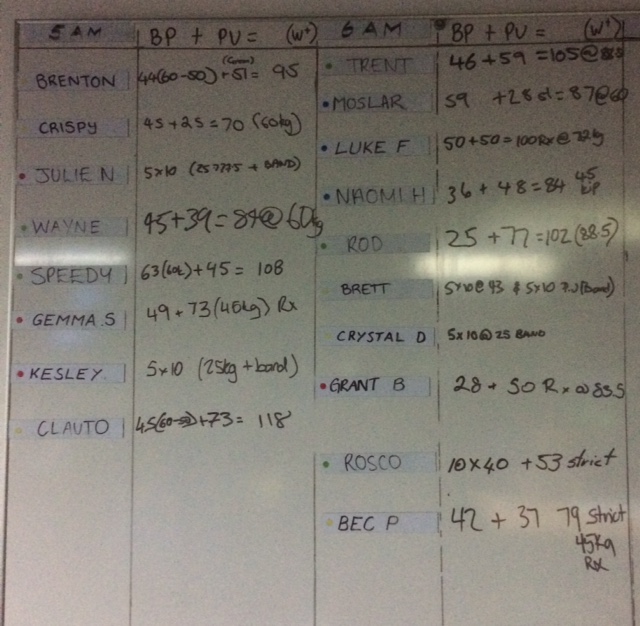 5 AM BP + PU = (wt)
BRENTON 44(60-50) + 51 = 95
CRISPY 45 + 25 = 70 (60kg)
JULIE N 5x10 (25 + BAND)
WAYNE 45+39 = 84 @ 60kg
SPEEDY 63(60k) + 45 = 108
GEMMA.S 49 + 73 (45kg) Rx
KESLEY. 5x10 (25kg + band)
CLAUTO 45(60-50) + 73 = 118
6 AM BP + PU = (wt)
TRENT 46 + 59 = 105 @
MOSLAR 59 + 28 st = 87 @ 60
LUKE F 50 + 50 = 100 Rx @ 72kg
NAOMI H 36 + 48 = 84 45
ROD 25 + 77 = 102 (88.5)
BRETT 5x10 @ 43 & 5x10 PU (Band)
CRYSTAL D 5x10 @ 25 BAND
GRANT B 28 + 50 Rx @ 83.5
ROSCO 10x40 + 53 strict
BEC P 42 + 37 79 strict
45kg
Rx